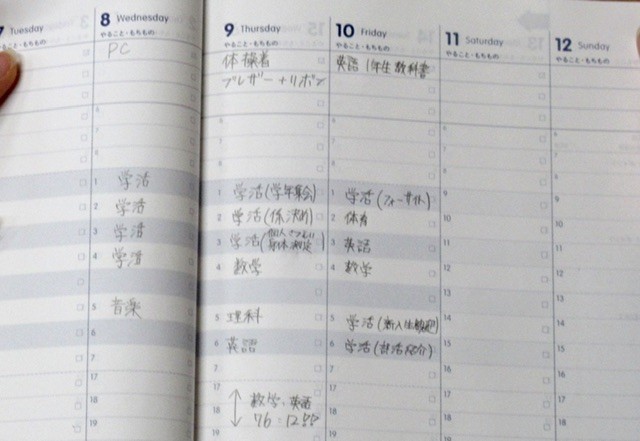 7 Tuesday
8 Wednesday
やること・もちもの
PC
1 学活
2 学活
3 学活
4 学活
5 音楽
6
7
17
18
19
9 Thursday
やること・もちもの
体操着
ブレザー + リボン
1 学活(学年集会)
2 学活(係決め)
3 学活(個人 身体測定)
4 数学
5 理科
6 英語
7
17
18
19
数学・英語
76・12
10 Friday
やること・もちもの
英語 1年生教科書
1 学活(フォーサイト)
2 体育
3 英語
4 数学
5 学活(新入生歓迎)
6 学活(部活紹介)
7
17
18
19
11 Saturday
やること・もちもの
9
10
11
12
14
15
17
18
12 Sunday
やること・もちもの
9
10
11
12
14
15
16
17
18